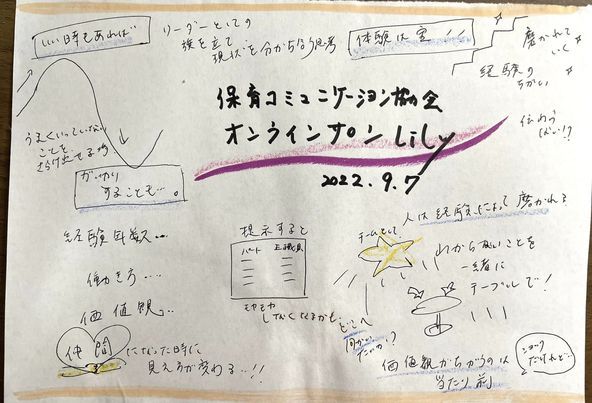 いい時もあれば
リーダーとしての
旗を立て
現状を分かち合う思考
体験は宝!!
磨かれて
いく
経験の
ちがい
伝わって
ない!?
保育コミュニケーション協会
オンラインサロン Lily
2022.9.7
うまくいっていない
ことを
さらけ出せる場
がっかり
することも…。
経験年数…
働き方…
価値観…
仲間
になった時に
見え方が変わる…!!
提示すると
パート
正職員
モヤモヤ
しなくなるかも
人は経験によって磨かれる
チームとして
わからないことを
一緒に
テーブルで!
どこへ
向かい
たいか!?
価値観がちがうのは
当たり前
ショック
だけれど…